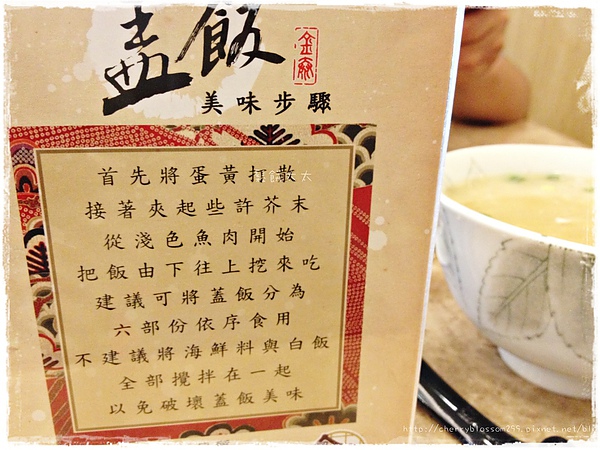 盖飯
美味步驟
首先將蛋黃打散
接著夾起些許芥末
從淺色魚肉開始
把飯由下往上挖來吃
建議可將蓋飯分為
六部份依序食用
不建議將海鮮料與白飯
全部攪拌在一起
以免破壞蓋飯美味
http://cherryblossom255.pixnet.net/bl